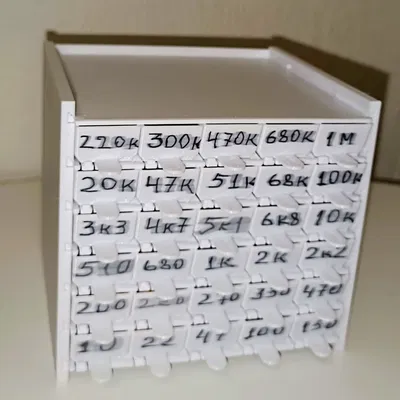 220K 300K 470K 680K 1M
20K 47K 51K 68K 100K
3K3 4K7 5K1 6K8 10K
510 680 1K 2K 2K2
200 270 330 470
10 22 47 100 150